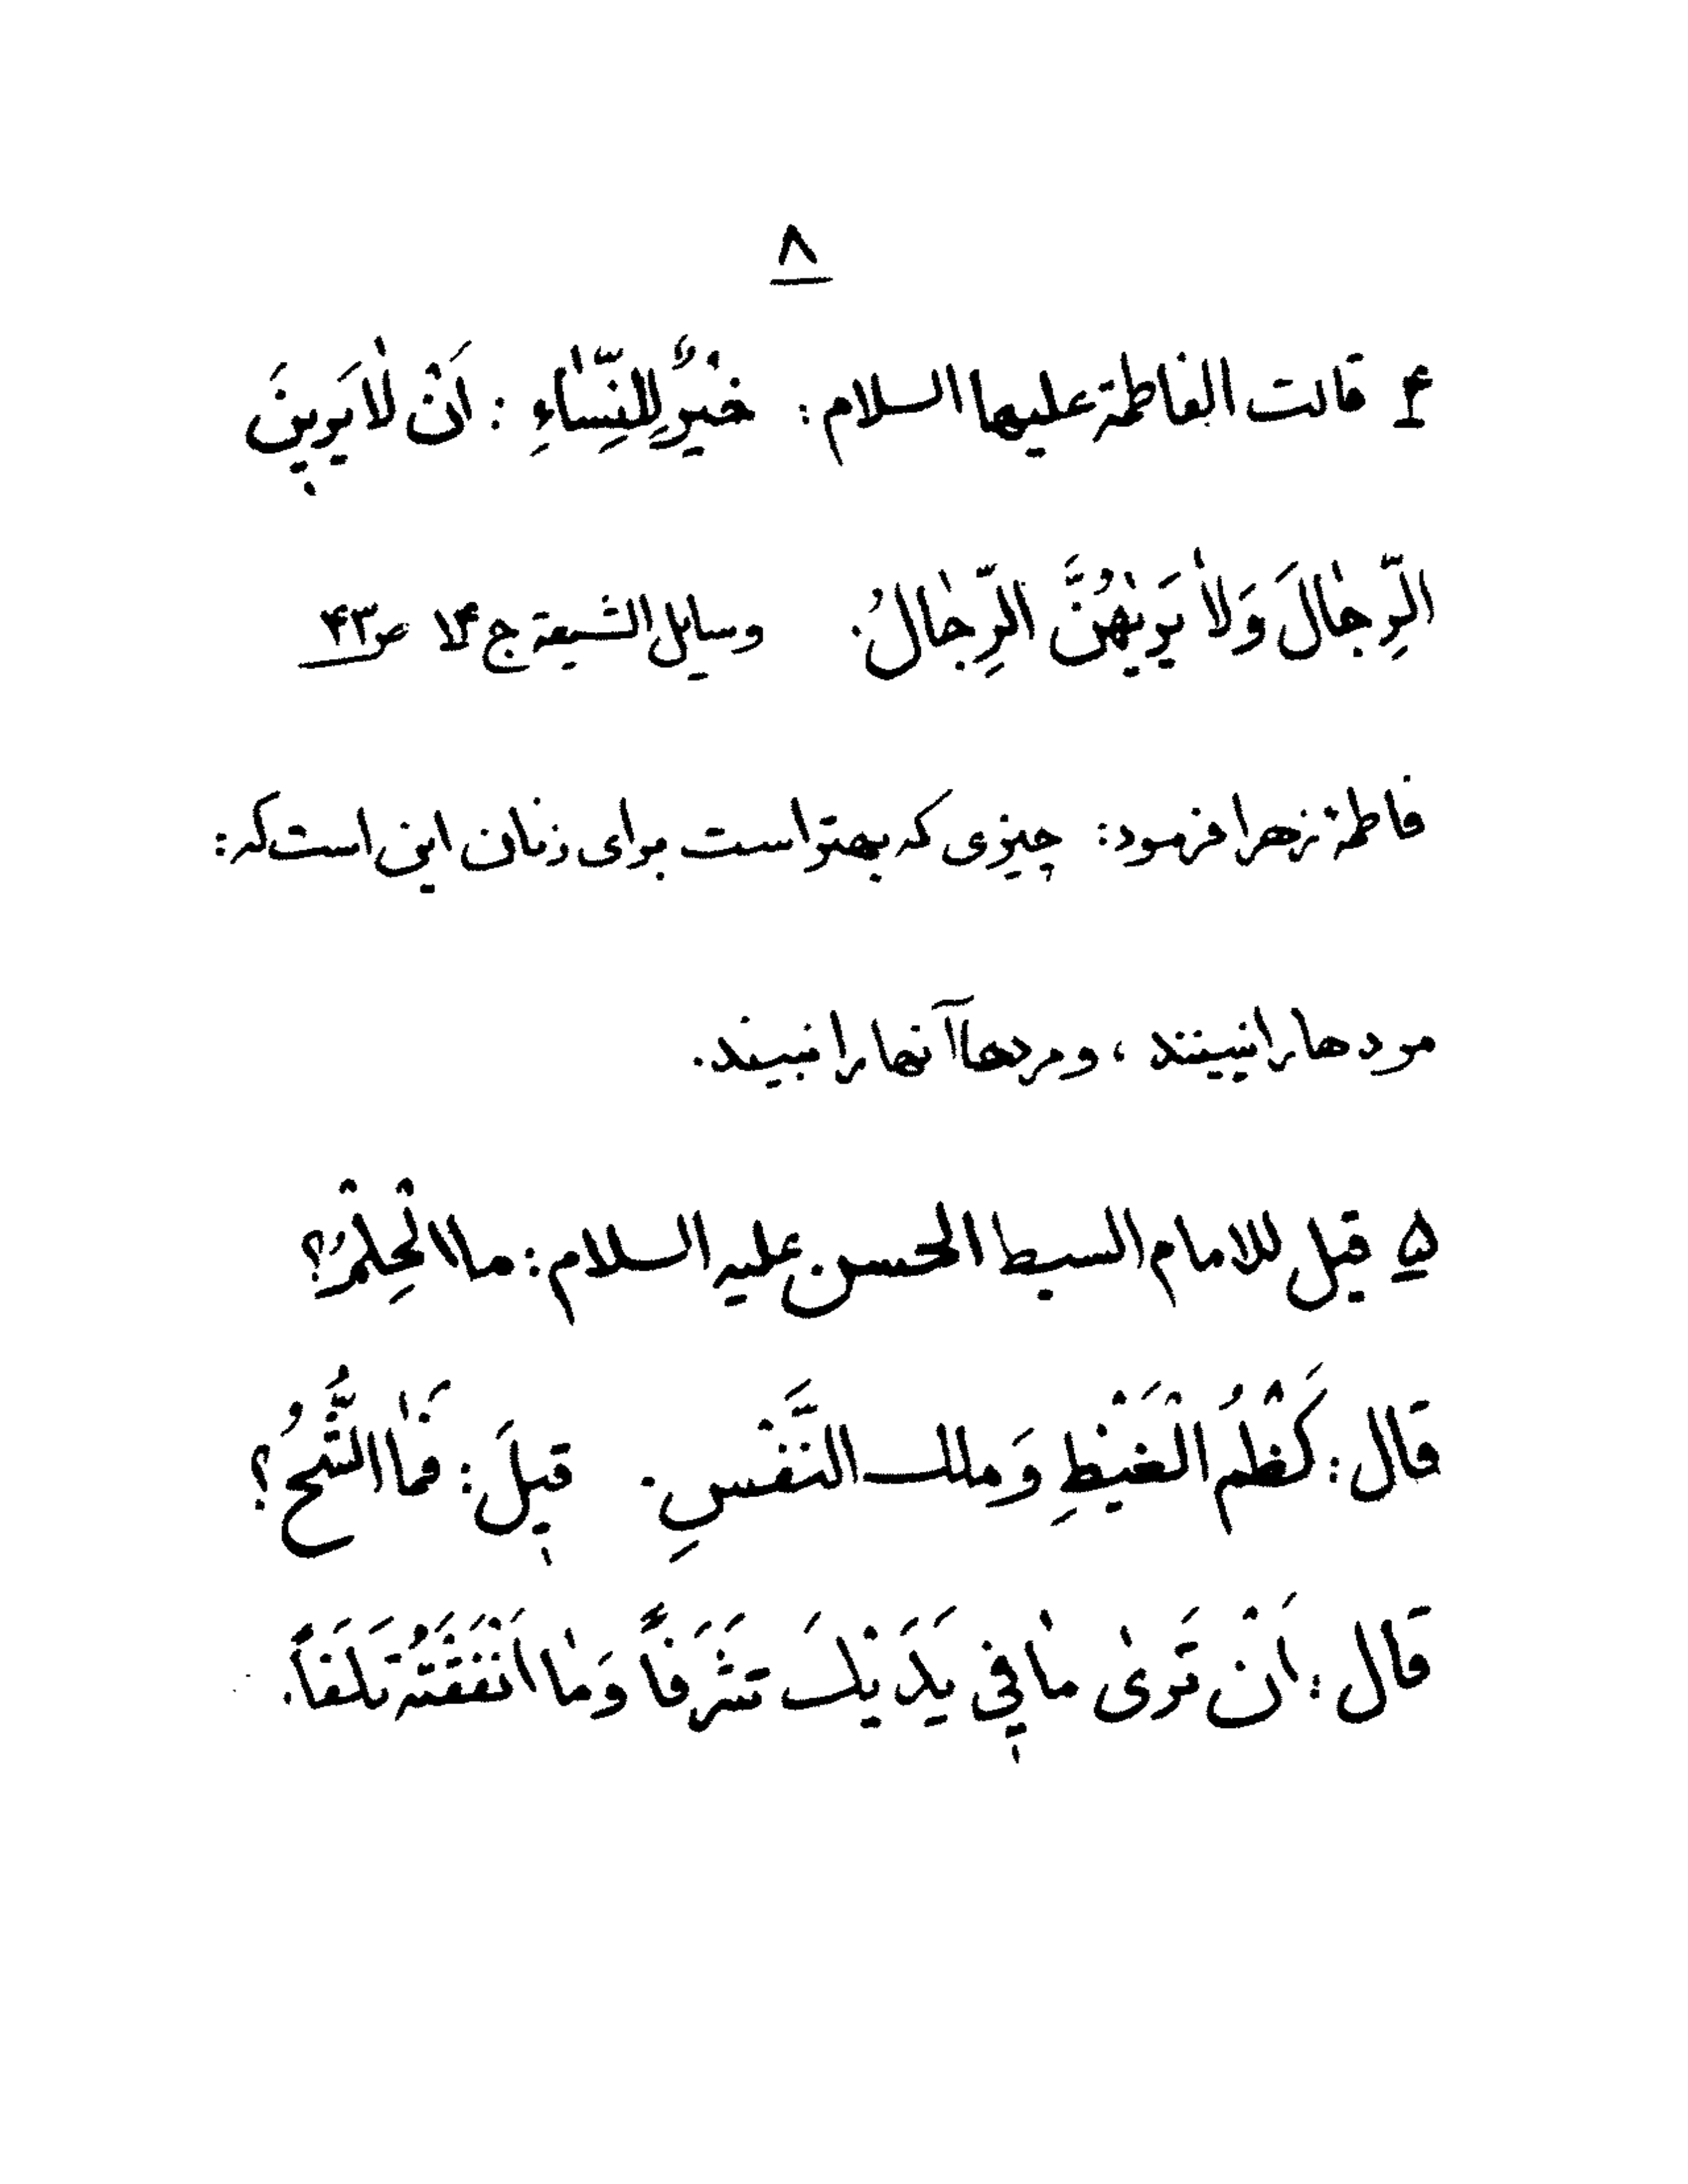 ۸
۴ قالت الفاطمة عليها السلام: خَيْرٌ لِلنِّسٰاءِ: اَنْ لٰا يَرِينَ
الرِّجٰالَ وَلٰا يَرِيٰهُنَّ الرِّجٰالُ. وسایل الشیعة ج ۱۴ ص ۴۳
فاطمه زهرا فرمود: چیزی که بهتر است برای زنان این است که:
مردها را نبینند، و مردها آنها را نبیند.
۵ قيل للامام السبط الحسن عليه السلام: ما الْحِلْمُ؟
قال: كَظْمُ الْغَيْظِ وَملك النَّفْسِ. قيلَ: فَمٰا الشُّحُّ؟
قال: اَنْ تَرىٰ مٰا في يَدَيْكَ شَرَفاً وَمٰا اَنْفَقْتَهُ تَلَفاً.